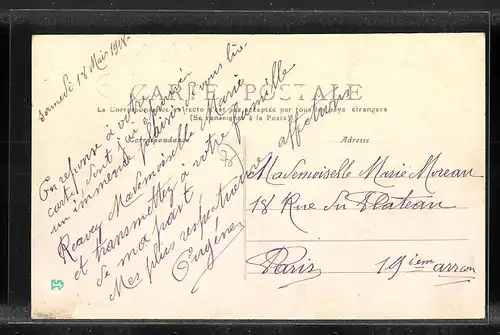 Samedi 18 Mai 1918
CARTE POSTALE
La Correspondance au recto n'est pas acceptée par tous les pays étrangers
(Se renseigner à la Poste)
Correspondance
Adresse
En réponse à votre
carte, dont j'ai éprouvé
un immense plaisir à vous lire
Recevez Mademoiselle Marie
et transmettez à votre famille
de ma part
Mes plus respectueuse affections
Eugène
Mademoiselle Marie Moreau
18 Rue du Plateau
Paris 19ième arron